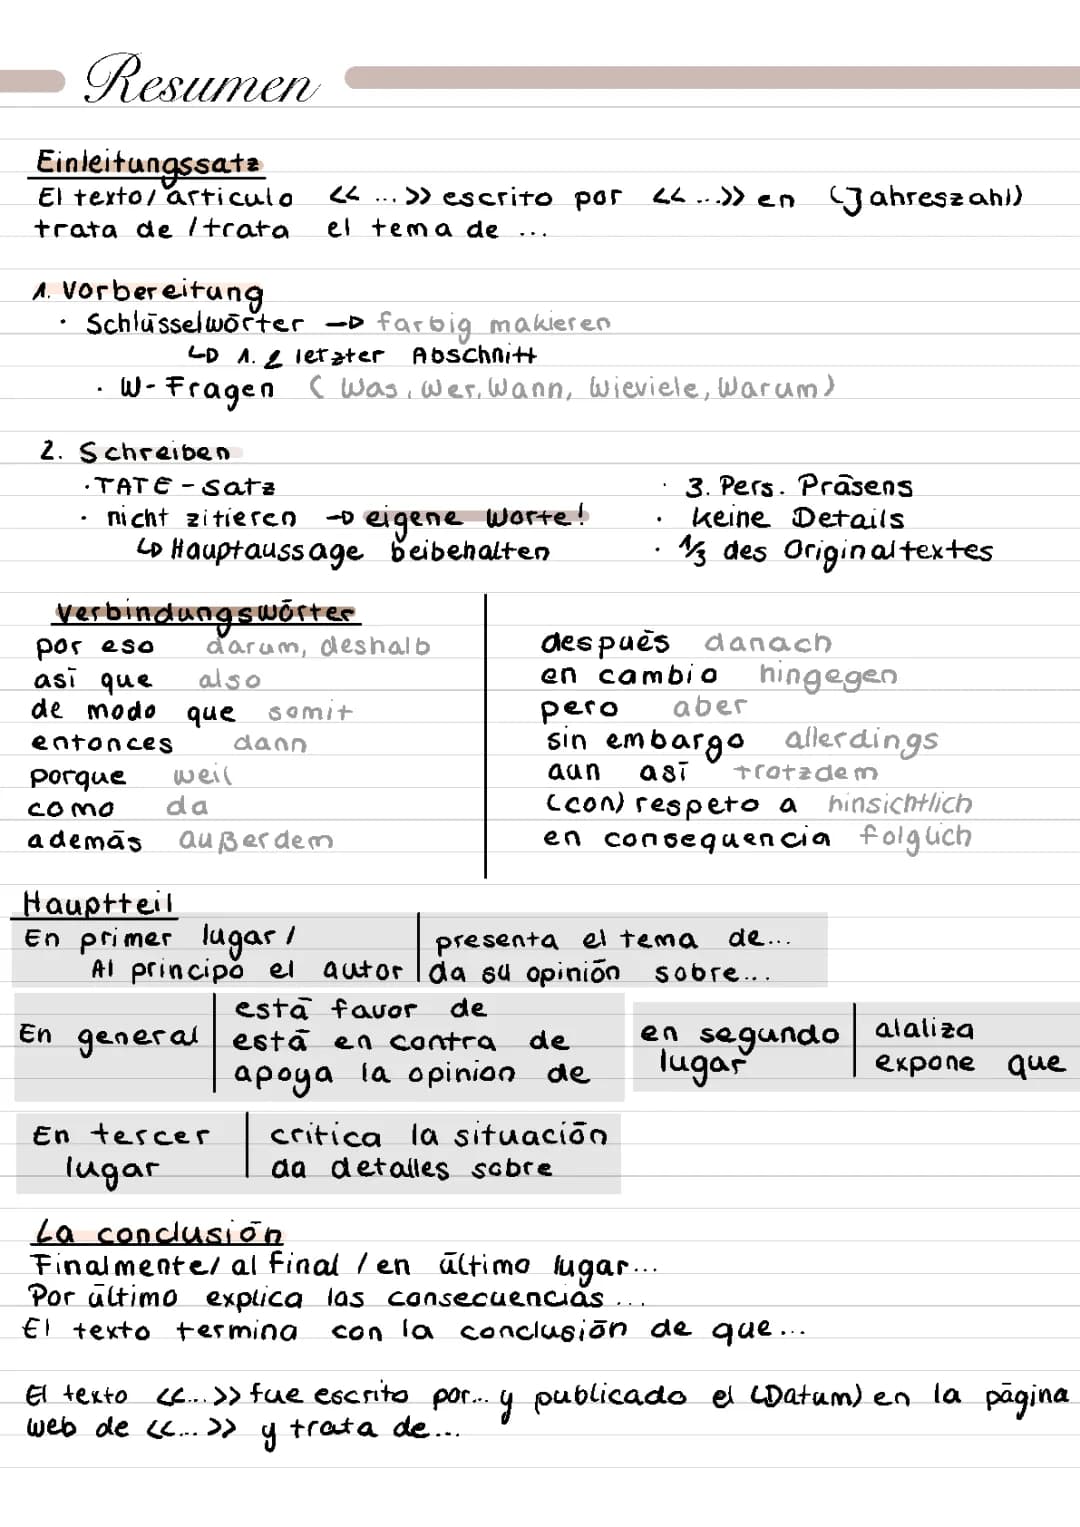 Resumen
Einleitungssatz
El texto/articulo << ... >> escrito por << ... >> en (Jahreszahl)
trata de / trata el tema de ...
1. Vorbereitung
· Schlüsselwörter → farbig makieren
↳ 1. & letzter Abschnitt
· W-Fragen (Was, Wer, Wann, Wieviele, Warum)
2. Schreiben
· TATE-Satz
· nicht zitieren → eigene Worte!
↳ Hauptaussage beibehalten
· 3. Pers. Präsens
· keine Details
· 1/3 des Originaltextes
Verbindungswörter
por eso darum, deshalb
así que also
de modo que somit
entonces dann
porque weil
como da
además außerdem
después danach
en cambio hingegen
pero aber
sin embargo allerdings
aun así trotzdem
(con) respeto a hinsichtlich
en consequencia folglich
Hauptteil
En primer lugar /
Al principo el autor
presenta el tema de...
da su opinión sobre...
En general
está favor de
está en contra de
apoya la opinion de
en segundo
lugar
alaliza
expone que
En tercer
lugar
critica la situación
da detalles sobre
La conclusión
Finalmente/ al final / en último lugar...
Por último explica las consecuencias ...
El texto termina con la conclusión de que...
El texto <<...>> fue escrito por... y publicado el (Datum) en la página
web de <<...>> y trata de...